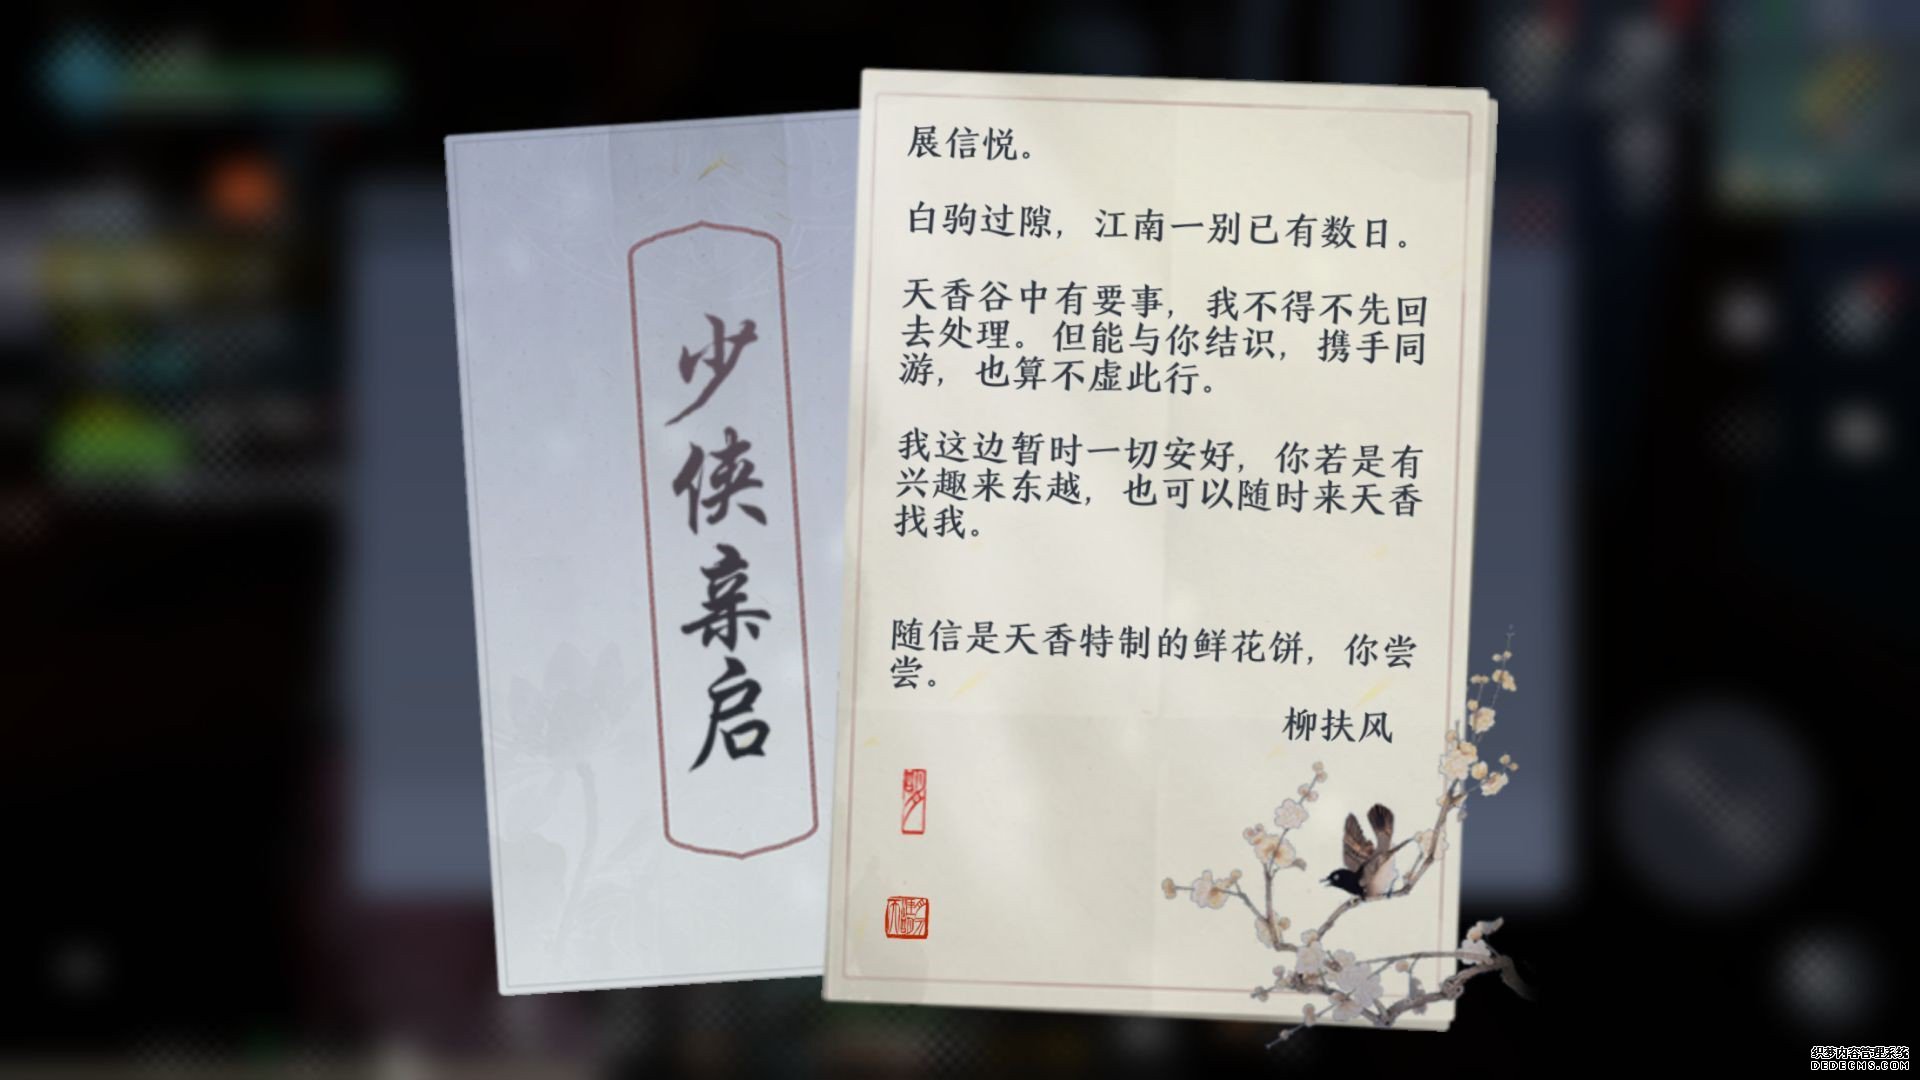 少侠亲启
展信悦。
白驹过隙，江南一别已有数日。
天香谷中有要事，我不得不先回
去处理。但能与你结识，携手同
游，也算不虚此行。
我这边暂时一切安好，你若是有
兴趣来东越，也可以随时来天香
找我。
随信是天香特制的鲜花饼，你尝
尝。
柳扶风
织梦内容管理系统
DEDECMS.COM